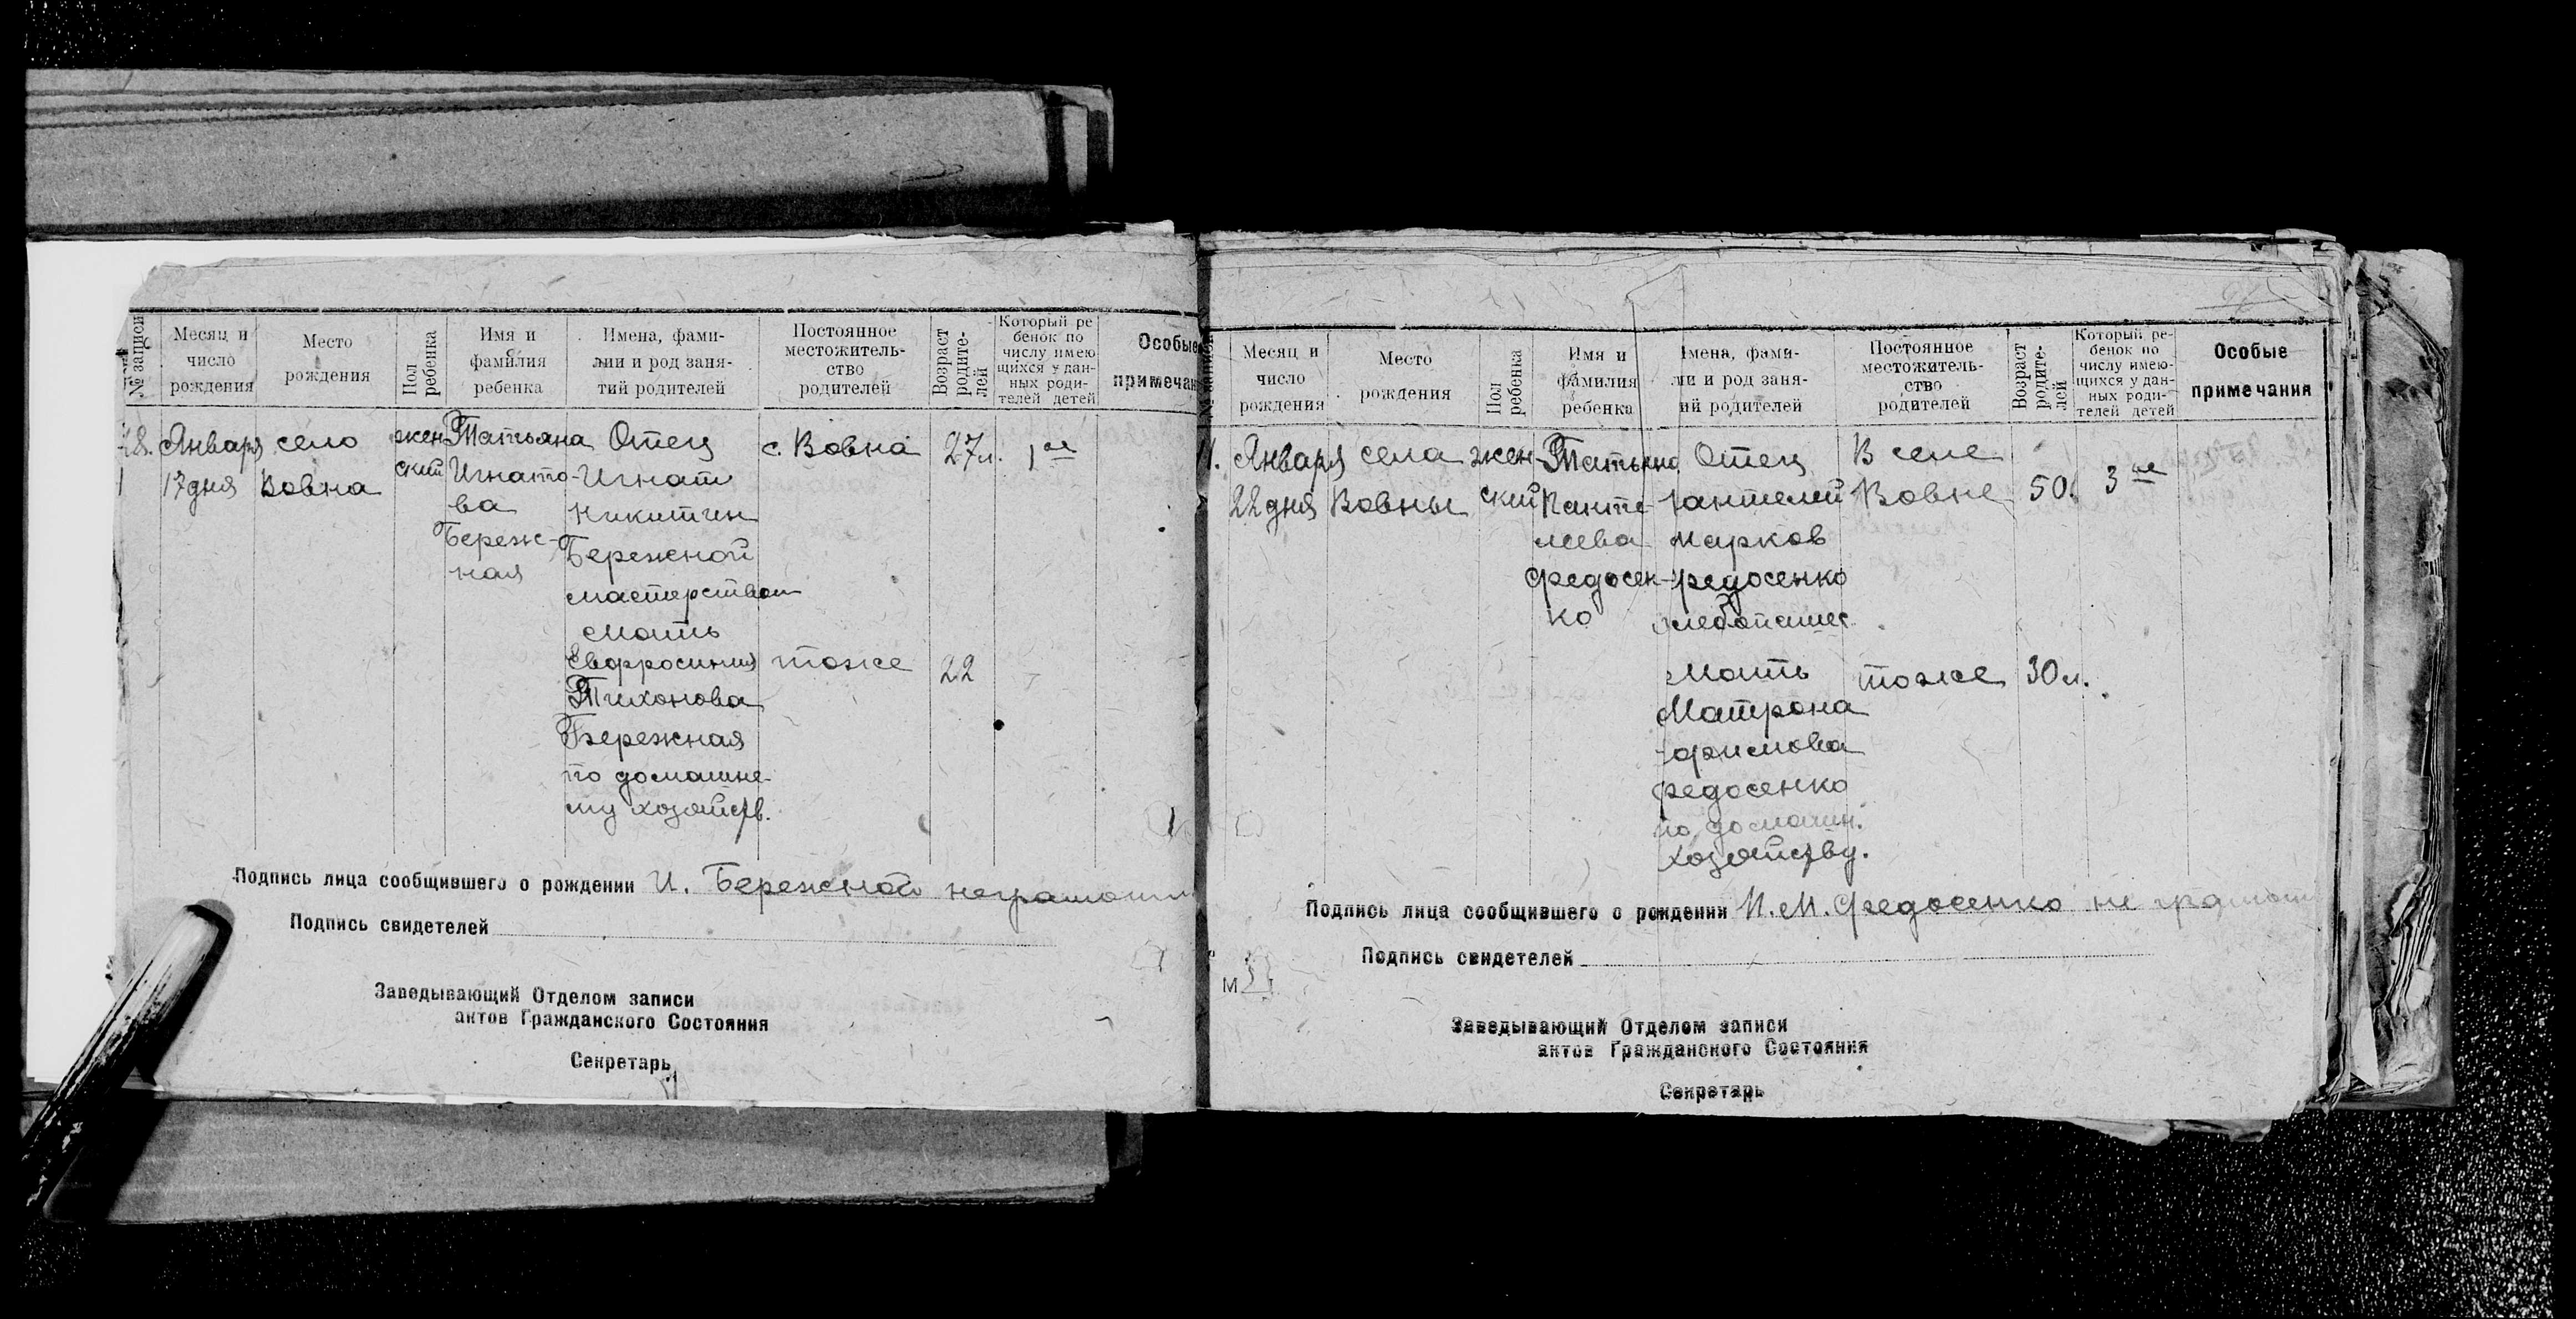 № записи
Месяц и число рождения
Место рождения
Пол ребенка
Имя и фамилия ребенка
Имена, фами-лии и род заня-тий родителей
Постоянное местожитель-ство родителей
Возраст родите-лей
Который ре бенок по числу имею щихся у дан-ных роди-телей детей
Особые примечан
18. Января село жен Татьяна Отец с. Вовна 27 л. 1 ое
17 дня Вовна ский Игнато- Игнат
ва Никитин
Береж- Бережной
ная мастерством
Мать
Евфросиния тоже 22
Тихонова
Бережная
по домашне-
му хозяйств.
Подпись лица сообщившего о рождении И. Бережной неграмотн
Подпись свидетелей
Заведывающий Отделом записи
актов Гражданского Состояния
Секретарь
№ записи
Месяц и число рождения
Место рождения
Пол ребенка
Имя и фамилия ребенка
Имена, фами-ли и род заня-ий родителей
Постоянное местожитель-ство родителей
Возраст родите-лей
Который ре-бенок по числу имею-щихся у дан-ных роди-телей детей
Особые примечания
Января села жен- Татьяна Отец В селе
22 дня Вовны ский Панте- антелей Вовне 50. 3 ие
леева Марков
Федосен- Федосенко
ко хлебопашес
Мать тоже 30 л.
Матрона
фимова
Федосенко
по домашн.
хозяйству.
Подпись лица сообщившего о рождении П. М. Федосенко не грамотн
Подпись свидетелей
М
Заведывающий Отделом записи
актов Гражданского Состояния
Секретарь